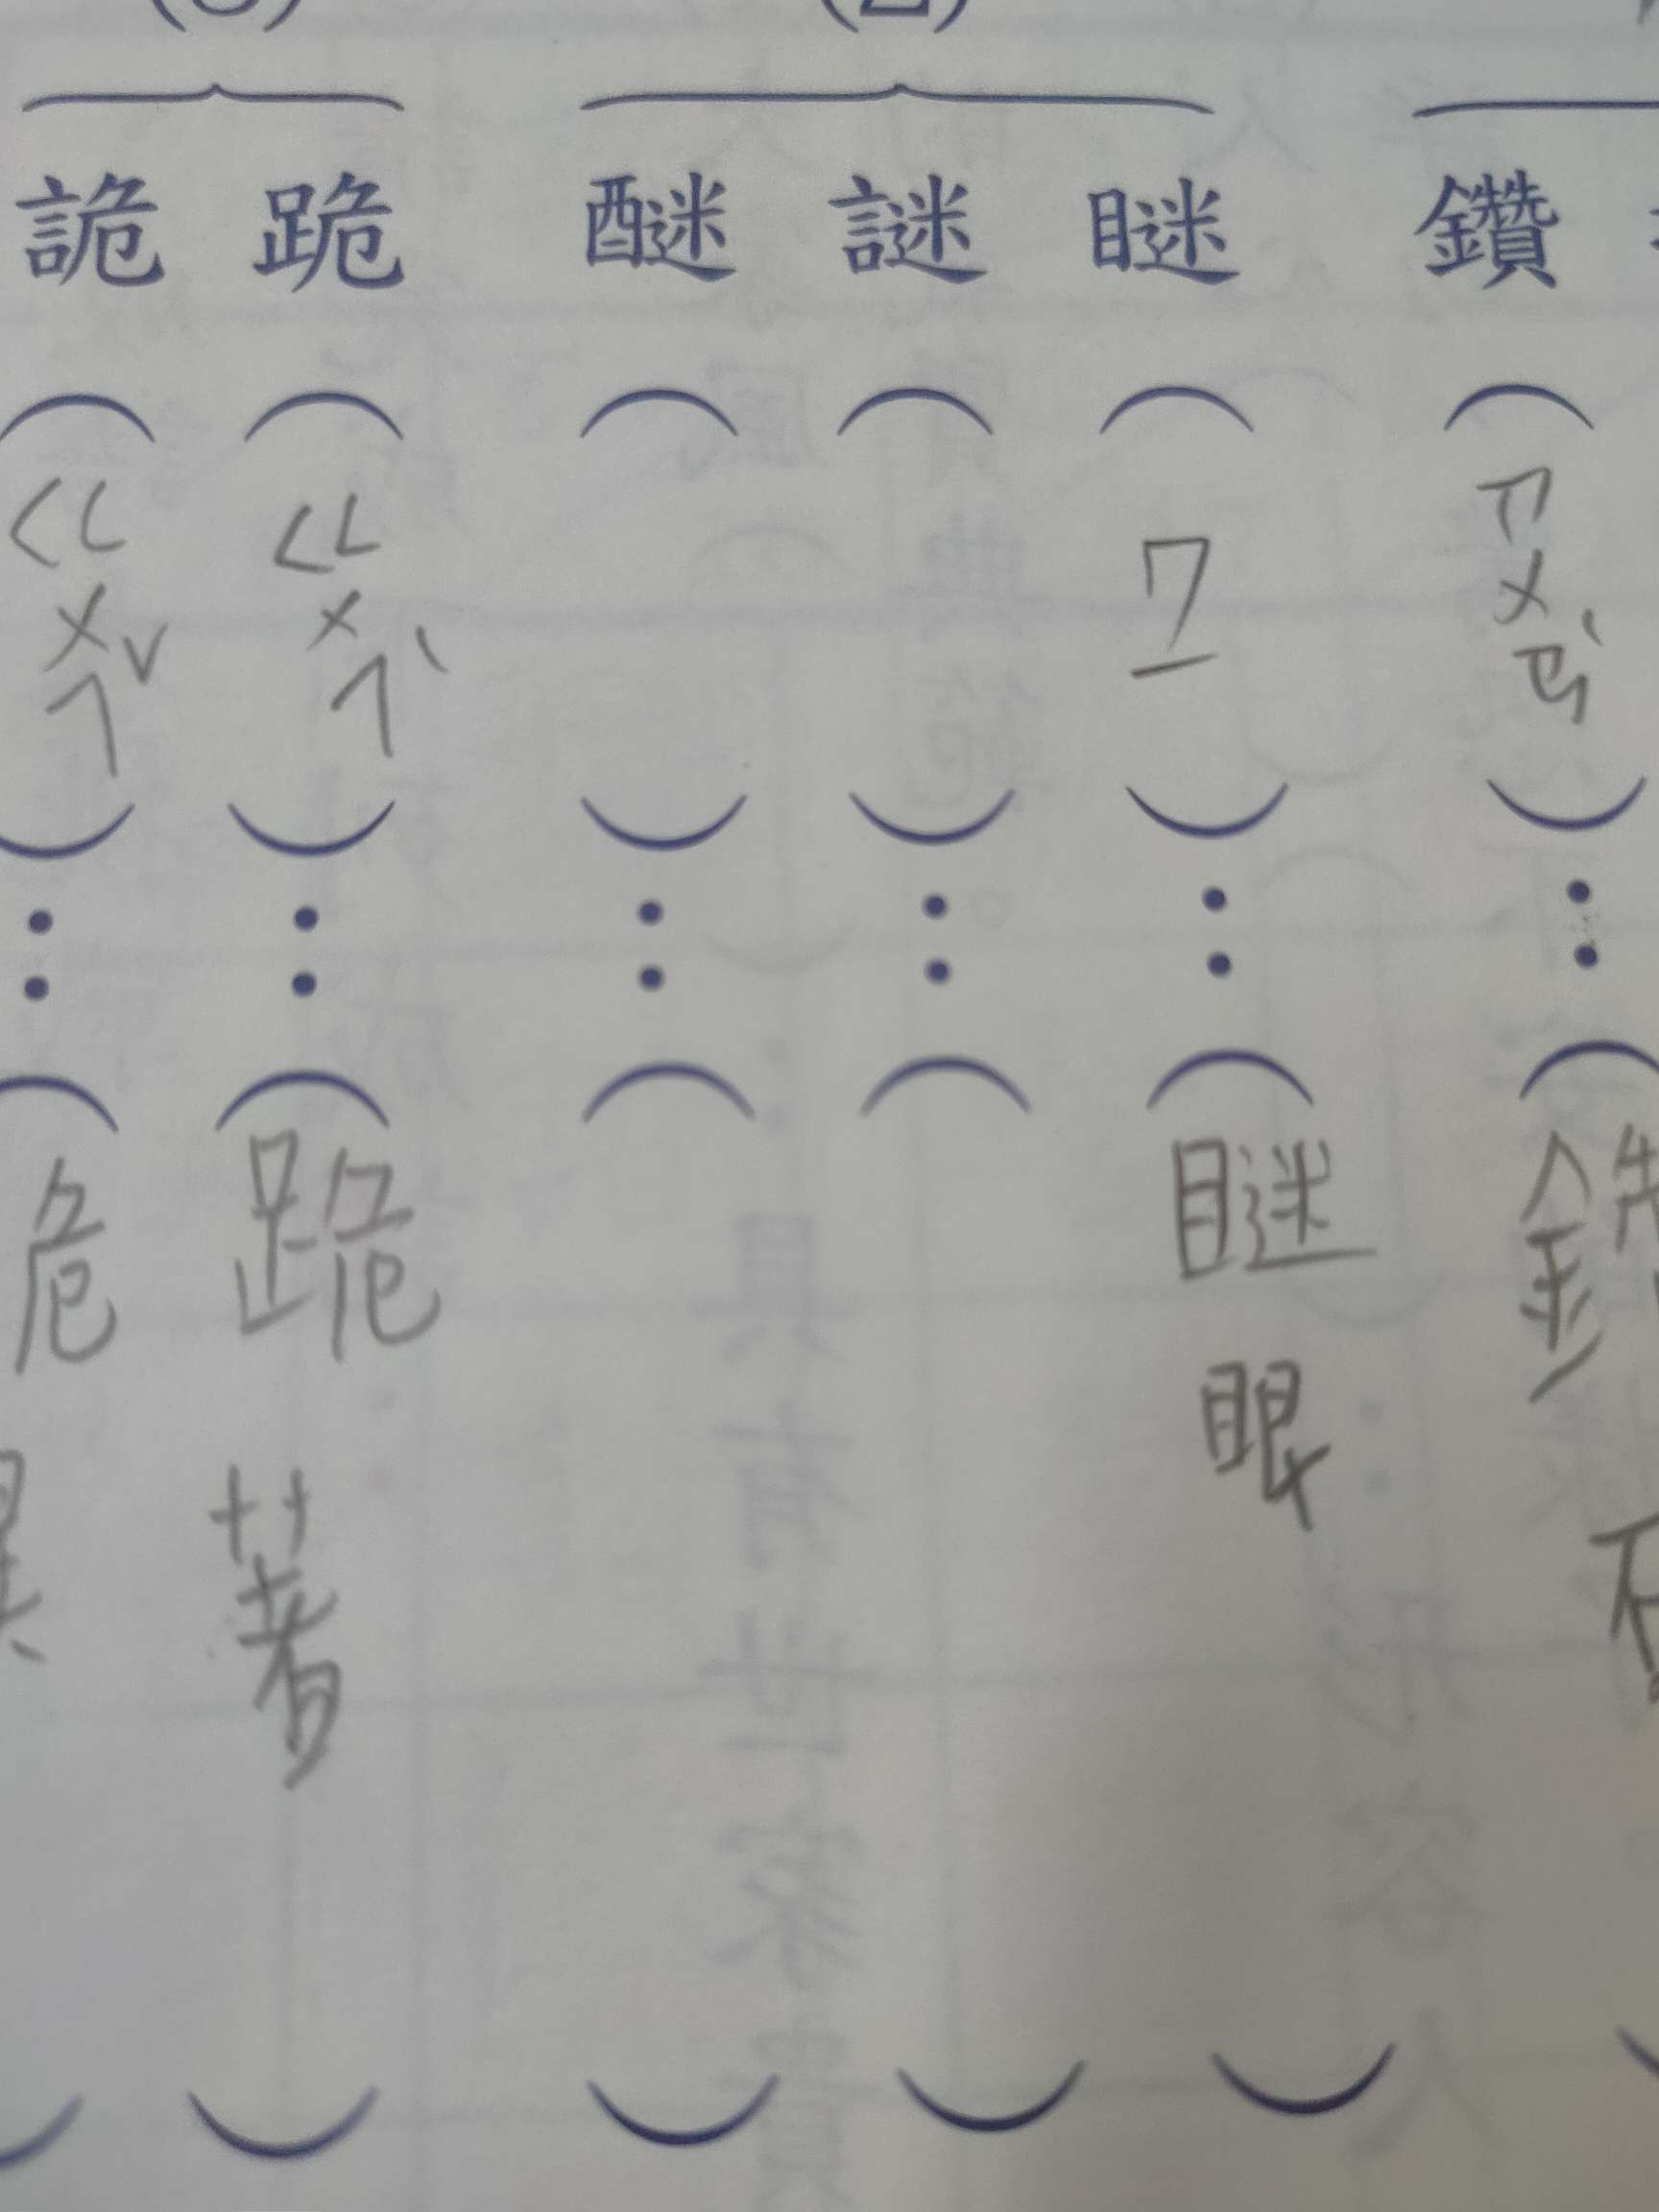 鑽（ㄗㄨㄢˋ）：（鑽石
(2)
瞇（ㄇㄧ）：（瞇眼）
謎（）：（）
醚（）：（）
跪（ㄍㄨㄟˋ）：（跪著）
詭（ㄍㄨㄟˇ）：（詭異）